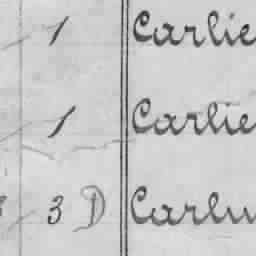 1 Carlie
1 Carlie
3 D Carlu